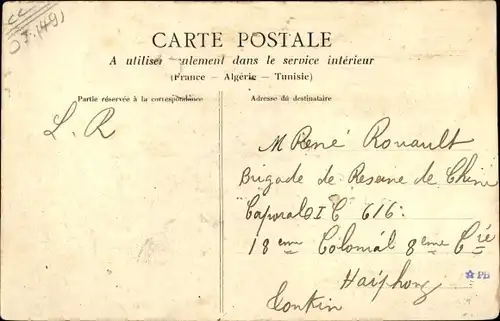 CARTE POSTALE
A utiliser seulement dans le service intérieur
(France — Algérie — Tunisie)
Partie réservée à la correspondance
Adresse du destinataire
L. R
M René Rouault
Brigade de Reserve de Chine
Caporal I C 616:
18eme Colonial 8eme Cie
Haïphong
Tonkin
PB